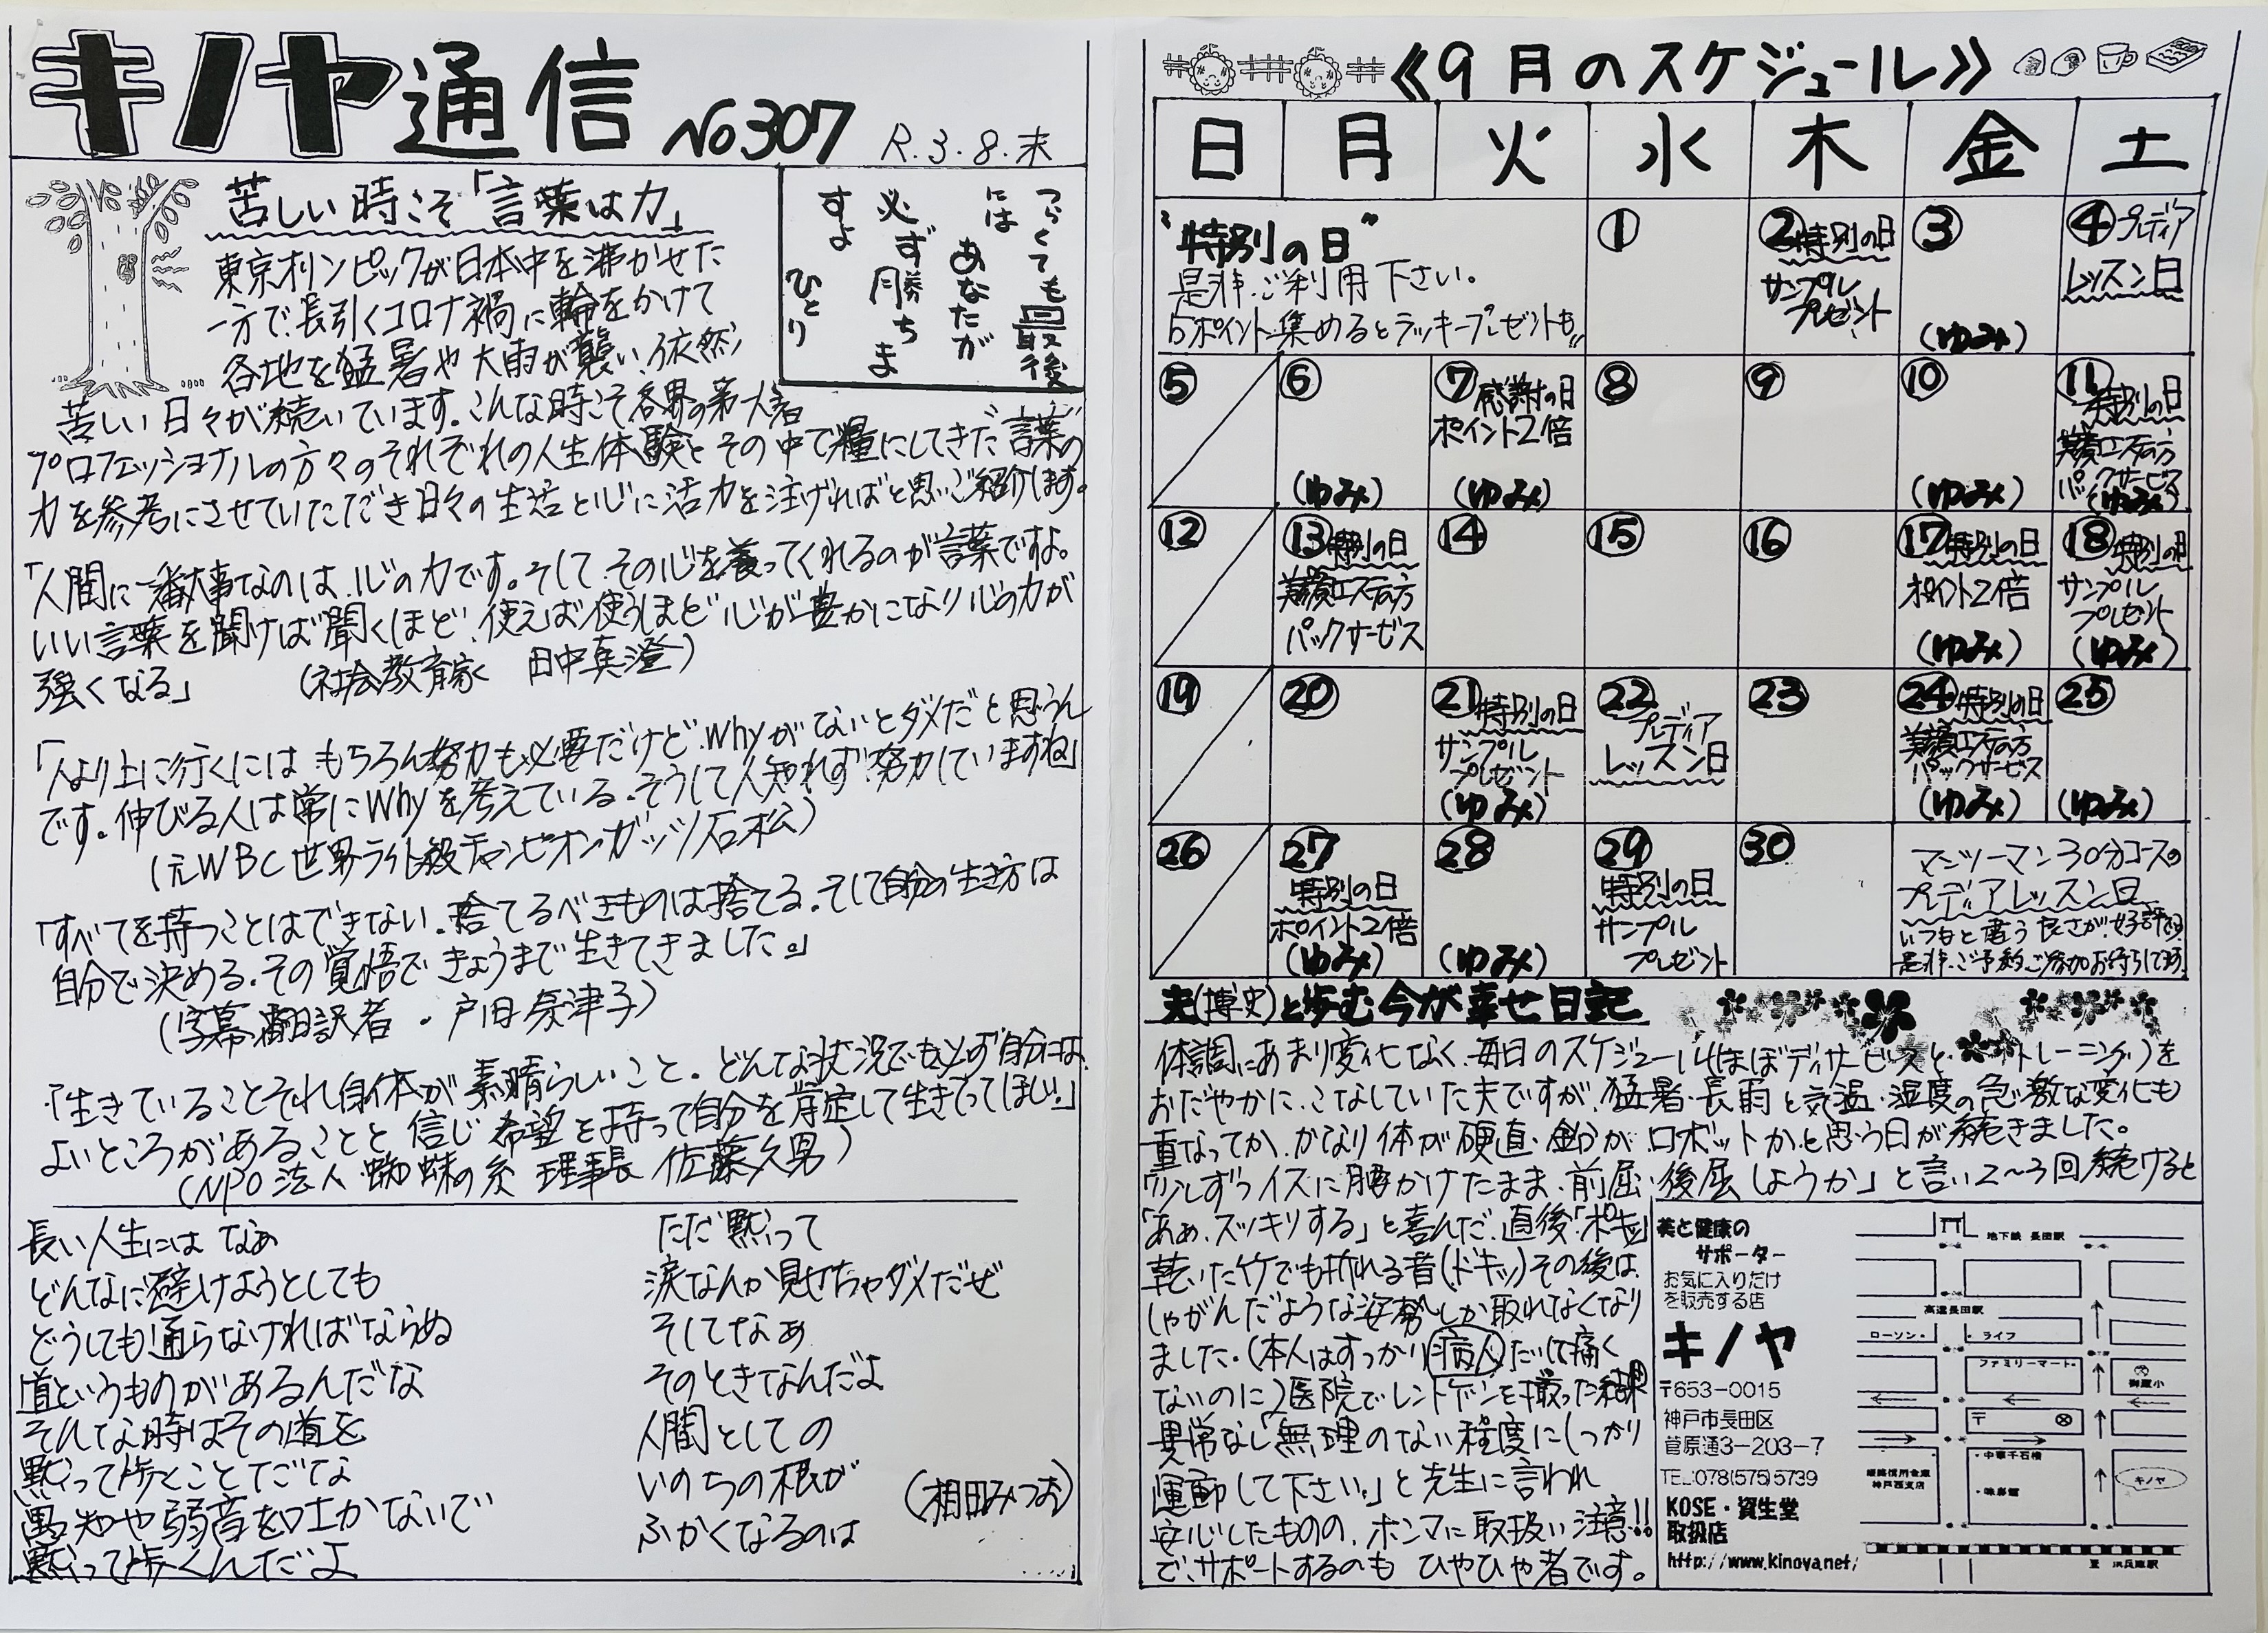 キノヤ通信 No307 R.3.8.末
苦しい時こそ「言葉は力」
つらくても最後
には
あなたが
必ず勝ちま
すよ
ひとり
東京オリンピックが日本中を沸かせた
一方で、長引くコロナ禍に輪をかけて
各地を猛暑や大雨が襲い、依然
苦しい日々が続いています。こんな時こそ各界の第一人者
プロフェッショナルの方々のそれぞれの人生体験とその中で糧にしてきた言葉の
力を参考にさせていただき日々の生活と心に活力を注げればと思いご紹介します。
「人間に一番大事なのは、心の力です。そして、その心を養ってくれるのが言葉ですよ。
いい言葉を聞けば聞くほど、使えば使うほど心が豊かになり心の力が
強くなる」 (社会教育家 田中真澄)
「人より上に行くには もちろん努力も必要だけど、whyがないとダメだと思うん
です。伸びる人は常にWhyを考えている。そうして人知れず努力していますね」
(元WBC世界ライト級チャンピオンガッツ石松)
「すべてを持つことはできない。捨てるべきものは捨てる。そして自分の生き方は
自分で決める。その覚悟できょうまで生きてきました。」
(字幕翻訳者・戸田奈津子)
「生きていることそれ自体が素晴らしいこと。どんな状況でも必ず自分には、
よいところがあることと信じ希望を持って自分を肯定して生きてってほしい。」
(NPO法人 蜘蛛の糸 理事長 佐藤久男)
長い人生には なあ
どんなに避けようとしても
どうしても通らなければならぬ
道というものがあるんだな
そんな時はその道を
黙って歩くことだな
愚知や弱音を吐かないで
黙って歩くんだよ
ただ黙って
涙なんか見せちゃダメだぜ
そしてなあ
そのときなんだよ
人間としての
いのちの根が
ふかくなるのは
(相田みつお)
《9月のスケジュール》
日 月 火 水 木 金 土
"特別の日"
是非、ご利用下さい。
5ポイント集めるとラッキープレゼントも!!
① ②特別の日 サンプルプレゼント ③ (ゆみ) ④プレディア レッスン日
⑤ ⑥ (ゆみ) ⑦感謝の日 ポイント2倍 (ゆみ) ⑧ ⑨ ⑩ (ゆみ) ⑪特別の日 美顔エステの方 パックサービス (ゆみ)
⑫ ⑬特別の日 美顔エステの方 パックサービス ⑭ ⑮ ⑯ ⑰特別の日 ポイント2倍 (ゆみ) ⑱特別の日 サンプルプレゼント (ゆみ)
⑲ ⑳ ㉑特別の日 サンプルプレゼント (ゆみ) ㉒プレディア レッスン日 ㉓ ㉔特別の日 美顔エステの方 パックサービス (ゆみ) ㉕ (ゆみ)
㉖ ㉗特別の日 ポイント2倍 (ゆみ) ㉘ (ゆみ) ㉙特別の日 サンプルプレゼント ㉚
マンツーマン30分コースの
プレディアレッスン日
いつもと違う良さが、好評です
是非、ご予約ご参加お待ちしてます
夫(博史)と歩む今が幸せ日記
体調にあまり変化なく、毎日のスケジュール(ほぼディサービスと トレーニング)を
おだやかに、こなしていた夫ですが、猛暑・長雨と気温・湿度の急激な変化も
重なってか、かなり体が硬直・鈴が、ロボットかと思う日が続きました。
「少しずつイスに腰かけたまま・前屈・後屈しようか」と言い2〜3回続けると
「あぁ、スッキリする」と喜んだ、直後「ポキッ」
乾いた竹でも折れる音(ドキッ)その後は、
しゃがんだような姿勢しか取れなくなり
ました。(本人はすっかり病人)たいして痛く
ないのに)2医院でレントゲンを撮った結果
異常なし「無理のない程度にしっかり
運動して下さい。」と先生に言われ
安心したものの、ホンマに取扱い注意!!
で、サポートするのも ひやひや者です。
美と健康の
サポーター
お気に入りだけ
を販売する店
キノヤ
〒653-0015
神戸市長田区
菅原通3-203-7
TEL:078(575)5739
KOSE・資生堂
取扱店
http://www.kinoya.net/
地下鉄 長田駅
高速長田駅
ローソン・
・ライフ
ファミリーマート・
御蔵小
〒
・中華千石橋
姫路信用金庫
神戸西支店
・味彩館
キノヤ
至 JR兵庫駅